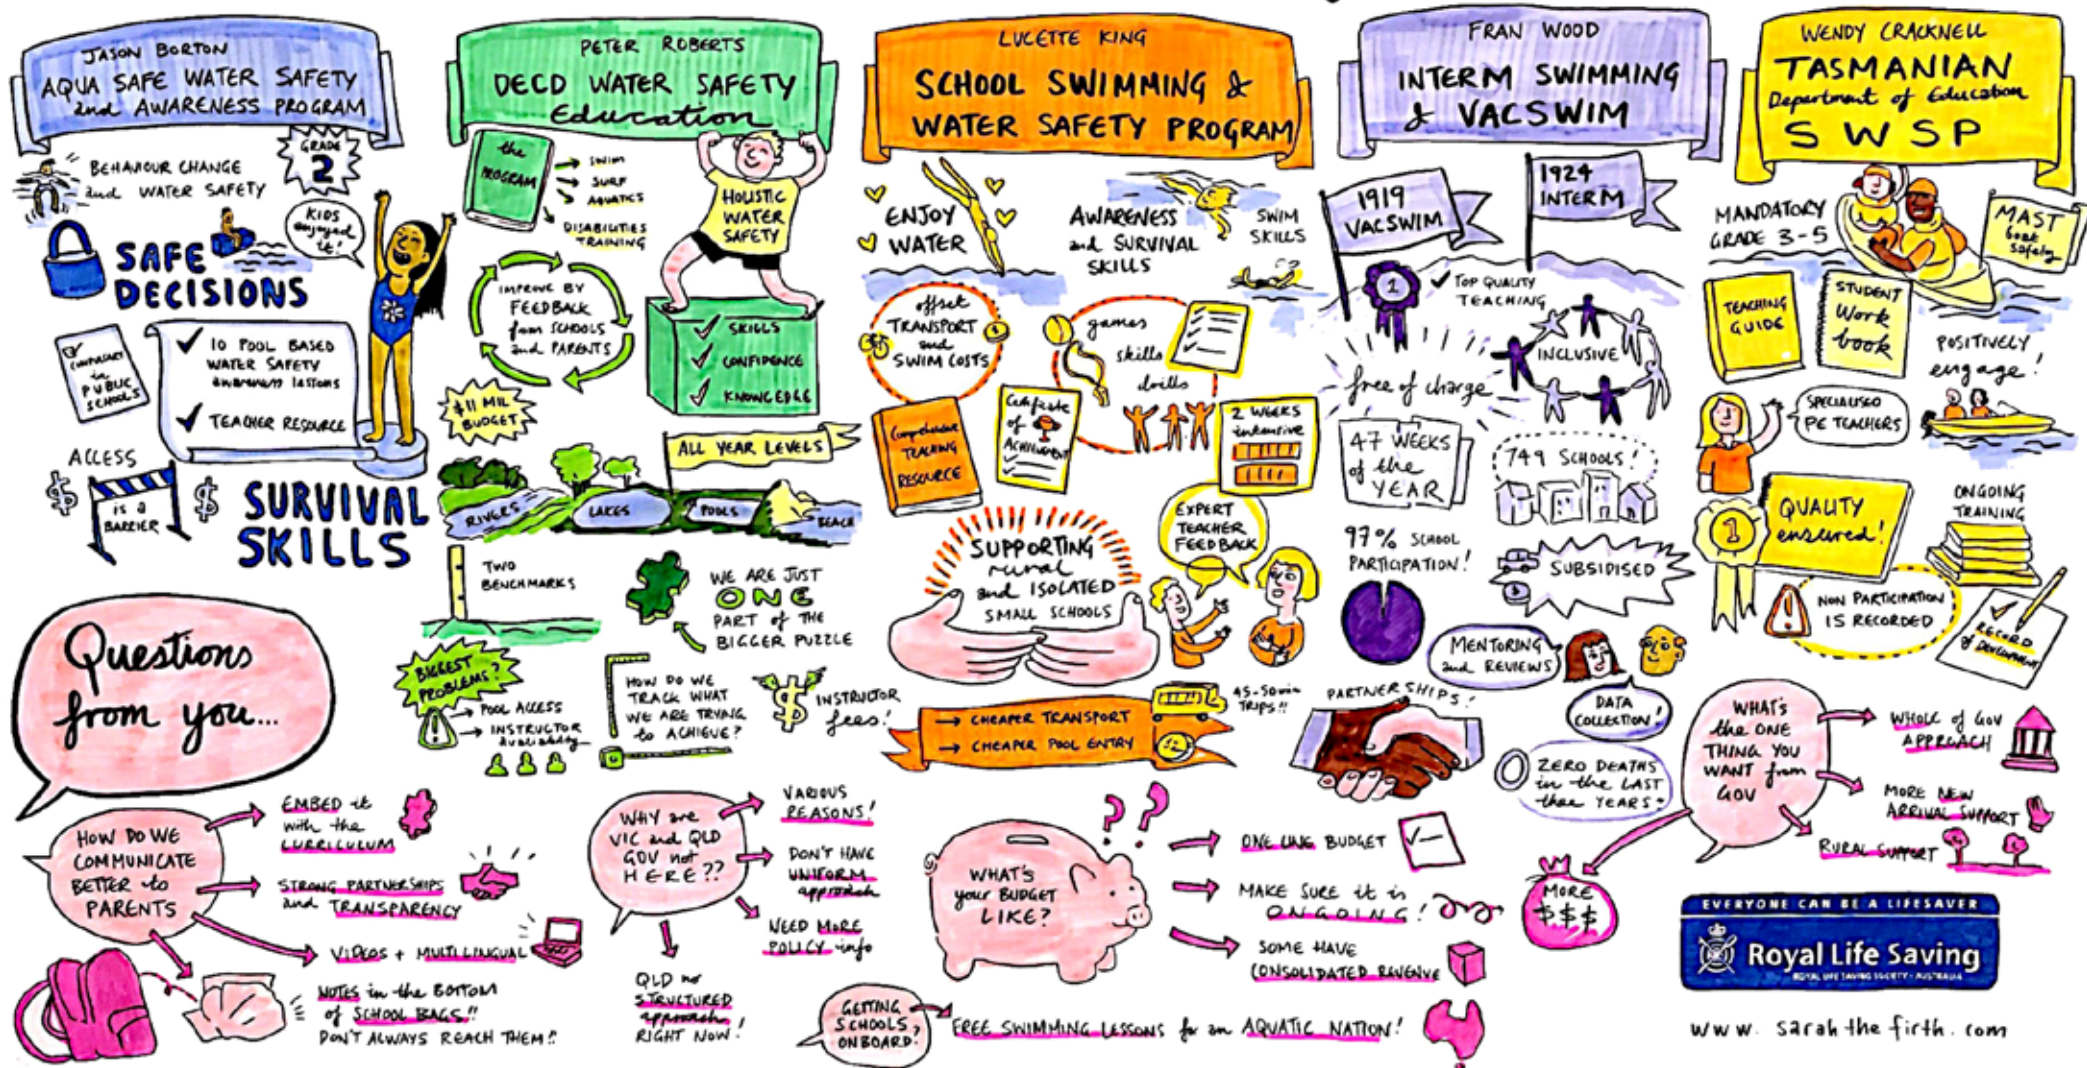 JASON BORTON
AQUA SAFE WATER SAFETY
and AWARENESS PROGRAM
BEHAVIOUR CHANGE
and WATER SAFETY
GRADE
2
KIDS
enjoyed
it!
SAFE
DECISIONS
COMPULSORY
in
PUBLIC
SCHOOLS
10 POOL BASED
WATER SAFETY
awareness lessons
TEACHER RESOURCE
ACCESS
IS a
BARRIER
$
$
SURVIVAL
SKILLS
PETER ROBERTS
DECD WATER SAFETY
Education
the
PROGRAM
SWIM
SURF
AQUATICS
DISABILITIES
TRAINING
HOLISTIC
WATER
SAFETY
IMPROVE BY
FEEDBACK
from SCHOOLS
and PARENTS
SKILLS
CONFIDENCE
KNOWLEDGE
$11 MIL
BUDGET
ALL YEAR LEVELS
RIVERS
LAKES
POOLS
BEACH
TWO
BENCHMARKS
WE ARE JUST
ONE
PART of THE
BIGGER PUZZLE
BIGGEST
PROBLEMS?
POOL ACCESS
INSTRUCTOR
availability
HOW DO WE
TRACK WHAT
WE ARE TRYING
to ACHIEVE?
$
INSTRUCTOR
fees!
LUCETTE KING
SCHOOL SWIMMING &
WATER SAFETY PROGRAM
ENJOY
WATER
AWARENESS
and SURVIVAL
SKILLS
SWIM
SKILLS
offset
TRANSPORT
and
SWIM COSTS
games
skills
drills
Comprehensive
TEACHING
RESOURCE
Certificate
of
ACHIEVEMENT
2 WEEKS
intensive
EXPERT
TEACHER
FEEDBACK
SUPPORTING
rural
and ISOLATED
SMALL SCHOOLS
CHEAPER TRANSPORT
CHEAPER POOL ENTRY
45-50 min
TRIPS!!
FRAN WOOD
INTERM SWIMMING
& VACSWIM
1919
VACSWIM
1924
INTERM
1
TOP QUALITY
TEACHING
free of charge
INCLUSIVE
47 WEEKS
of the
YEAR
749 SCHOOLS!
97% SCHOOL
PARTICIPATION!
SUBSIDISED
MENTORING
and REVIEWS
DATA
COLLECTION!
PARTNERSHIPS!
ZERO DEATHS
in the LAST
YEARS
WENDY CRACKNELL
TASMANIAN
Department of Education
SWSP
MANDATORY
GRADE 3-5
MAST
boat
safety
TEACHING
GUIDE
STUDENT
Work
book
POSITIVELY
engage!
SPECIALISED
PE TEACHERS
1
QUALITY
ensured!
ONGOING
TRAINING
NON PARTICIPATION
IS RECORDED
RECORD
of DEVELOPMENT
Questions
from you...
HOW DO WE
COMMUNICATE
BETTER to
PARENTS
EMBED it
with the
CURRICULUM
STRONG PARTNERSHIPS
and TRANSPARENCY
VIDEOS + MULTILINGUAL
NOTES in the BOTTOM
of SCHOOL BAGS!!
DON'T ALWAYS REACH THEM!!
WHY are
VIC and QLD
GOV not
HERE??
VARIOUS
REASONS!
DON'T HAVE
UNIFORM
approach
NEED MORE
POLICY info
QLD no
STRUCTURED
approach
RIGHT NOW!
WHAT'S
your BUDGET
LIKE?
??
ONE LINE BUDGET
MAKE SURE it is
ONGOING!
SOME HAVE
CONSOLIDATED REVENUE
GETTING
SCHOOLS
ONBOARD?
FREE SWIMMING LESSONS for an AQUATIC NATION!
WHAT'S
the ONE
THING YOU
WANT from
GOV
WHOLE of GOV
APPROACH
MORE NEW
ARRIVAL SUPPORT
RURAL SUPPORT
MORE
$$$
EVERYONE CAN BE A LIFESAVER
Royal Life Saving
ROYAL LIFE SAVING SOCIETY - AUSTRALIA
www. sarahthefirth. com